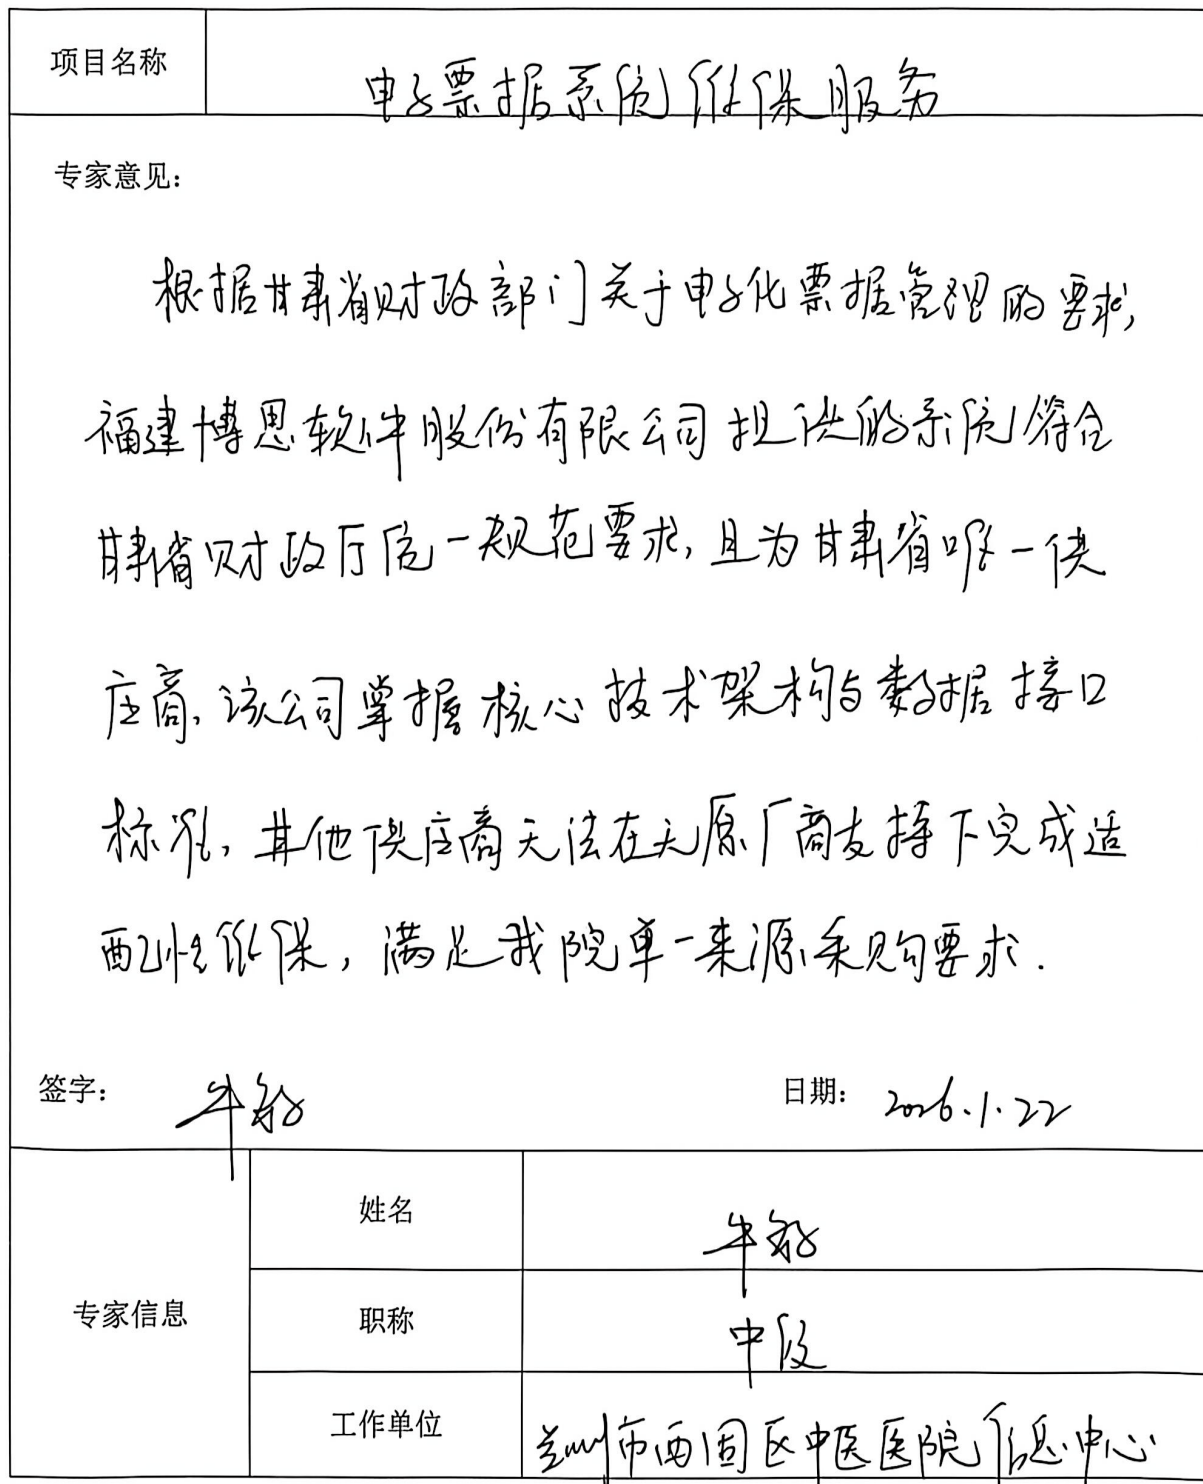 项目名称 电子票据系统维保服务
专家意见：
根据甘肃省财政部门关于电子化票据管理的要求，
福建博思软件股份有限公司提供的系统符合
甘肃省财政厅统一规范要求，且为甘肃省唯一供
应商，该公司掌握核心技术架构与数据接口
标准，其他供应商无法在无原厂商支持下完成适
配性维保，满足我院单一来源采购要求.
签字： 牛 日期： 2026.1.22
专家信息 姓名 牛
职称 中级
工作单位 兰州市西固区中医医院信息中心